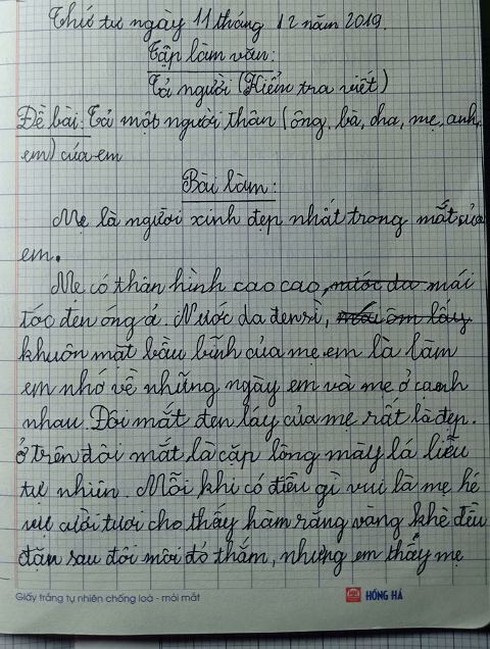 Thứ tư ngày 11 tháng 12 năm 2019.
Tập làm văn:
Tả người (Kiểm tra viết)
Đề bài: Tả một người thân (ông, bà, cha, mẹ, anh,
em) của em
Bài làm:
Mẹ là người xinh đẹp nhất trong mắt của
em.
Mẹ có thân hình cao cao, nước da mái
tóc đen óng ả. Nước da đen sì, ôm lấy
khuôn mặt bầu bĩnh của mẹ em là làm
em nhớ về những ngày em và mẹ ở cạnh
nhau. Đôi mắt đen láy của mẹ rất là đẹp.
Ở trên đôi mắt là cặp lông mày lá liễu
tự nhiên. Mỗi khi có điều gì vui là mẹ hé
cười tươi cho thấy hàm răng vàng khè đều
đặn sau đôi môi đỏ thắm, nhưng em thấy mẹ
Giấy trắng tự nhiên chống loá - mỏi mắt
HỒNG HÀ